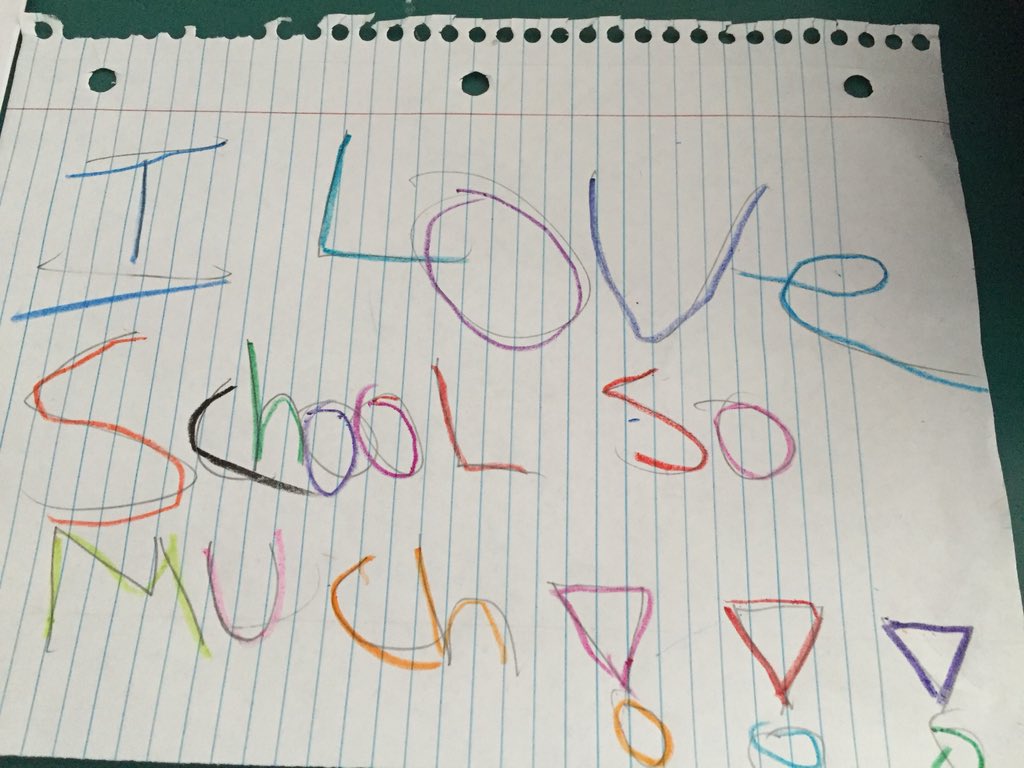 I LOVe
SchooL so
Much !!!